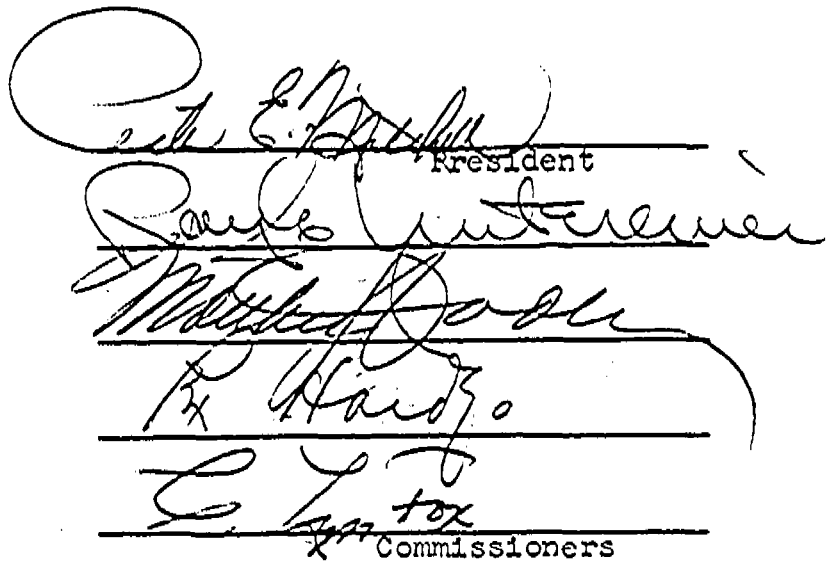 Peter E. Mitchell
President
Ray E. Untereiner
Matthew J. Dooley
Rex Hardy
C. Lyn Fox
Commissioners